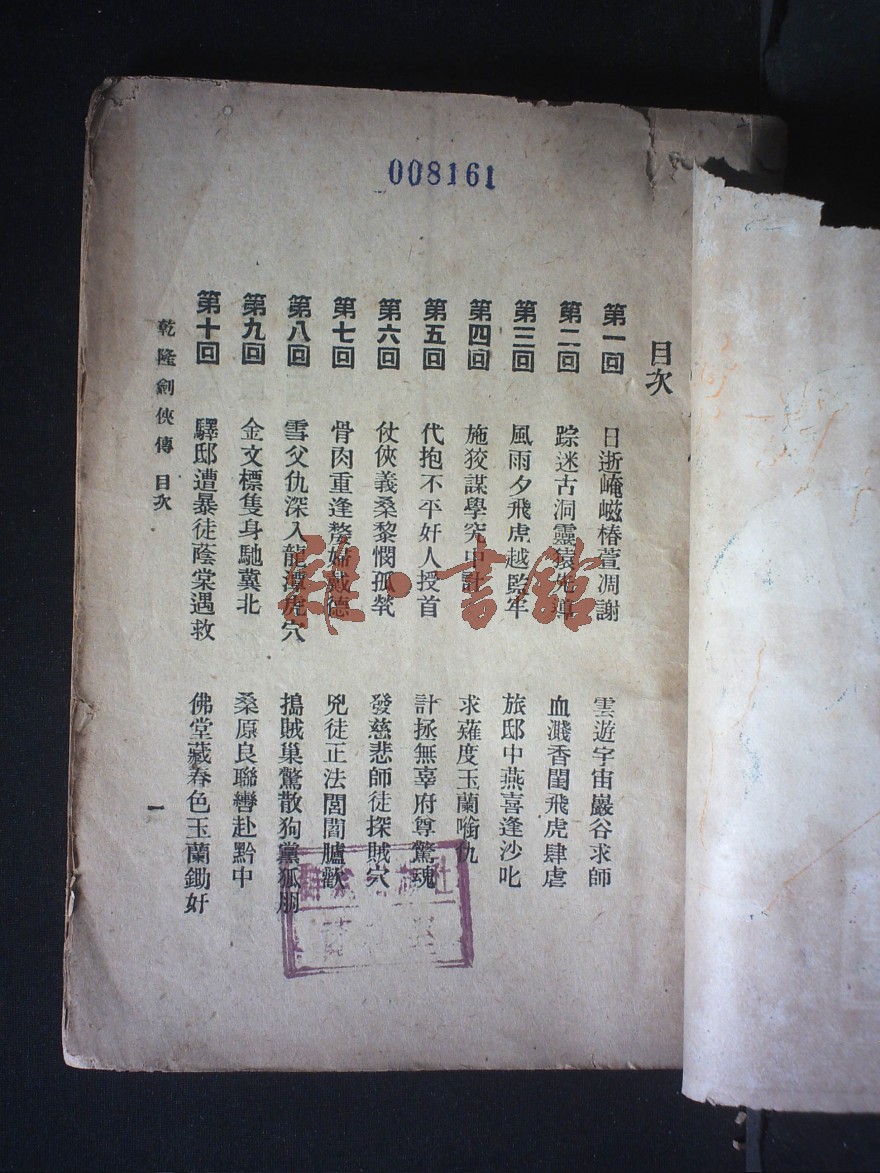 008161
目次
第一回 日逝崦嵫椿萱凋謝 雲遊宇宙巖谷求師
第二回 踪迷古洞靈猿先導 血濺香閨飛虎肆虐
第三回 風雨夕飛虎越監牢 旅邸中燕喜逢沙叱
第四回 施狡謀學究中計 求薙度玉蘭啣仇
第五回 代抱不平奸人授首 計拯無辜府尊驚魂
第六回 仗俠義桑黎憫孤煢 發慈悲師徒探賊穴
第七回 骨肉重逢嫠婦戴德 兇徒正法閭閻臚歡
第八回 雪父仇深入龍潭虎穴 搗賊巢驚散狗黨狐朋
第九回 金文標隻身馳冀北 桑原良聯轡赴黔中
第十回 驛邸遭暴徒蔭棠遇救 佛堂藏春色玉蘭鋤奸
乾隆劍俠傳 目次
一
雅·書館
社